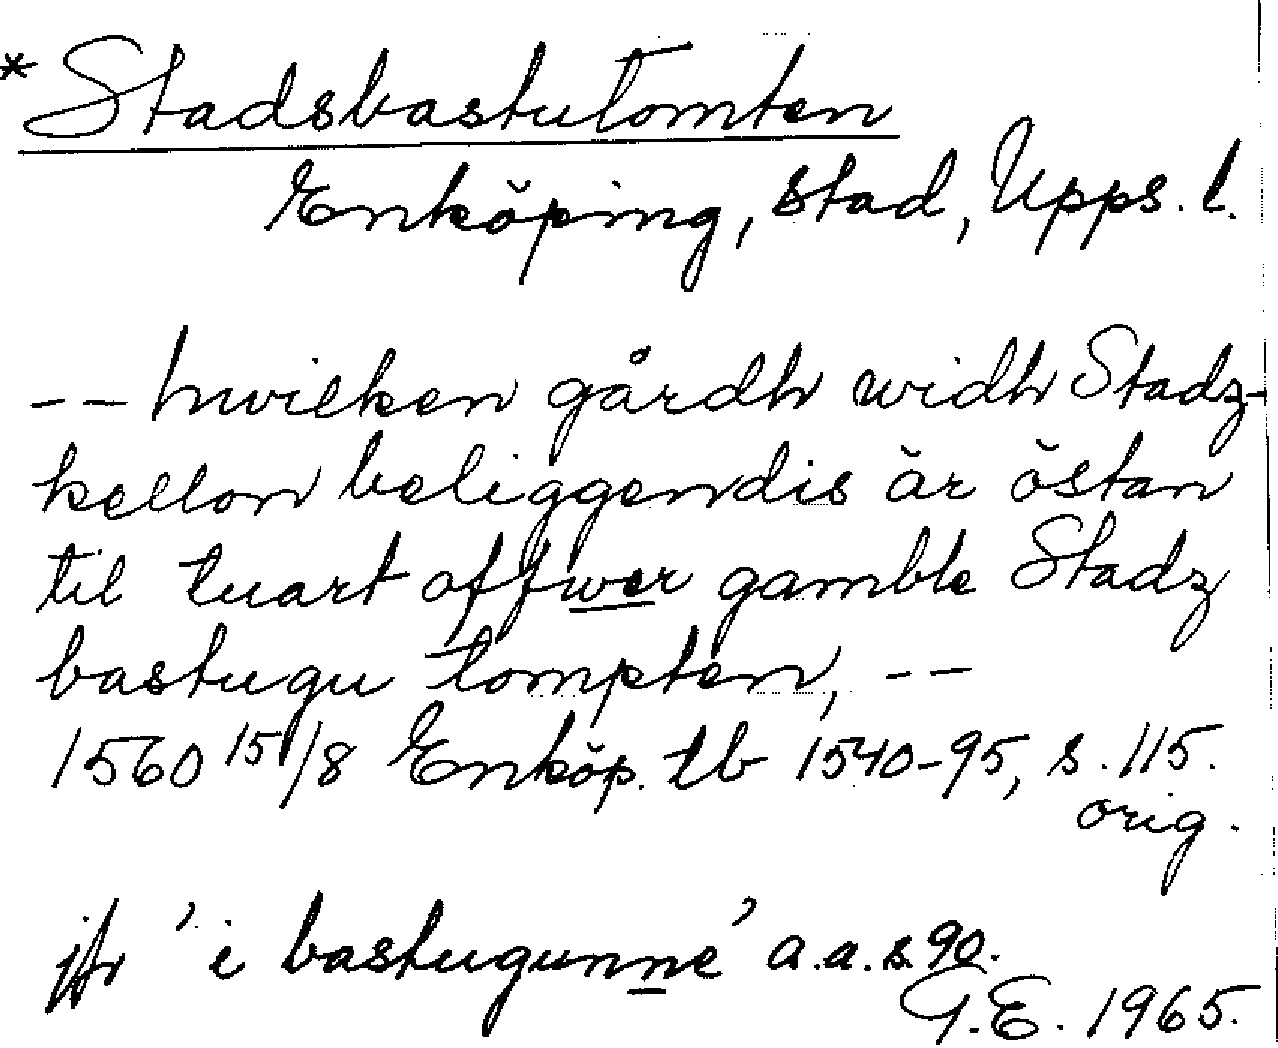 *Stadsbastutomten
Enköping, stad, Upps. l.
-- hwilken gårdh widh Stadz-
kellon beliggendis är östan
til tuart offwer gamble Stadz
bastugu tompten, --
1560 15/8 Enköp. tb 1540-95, s. 115.
orig.
jfr 'i bastugunne' a.a. s. 90.
G.E. 1965.